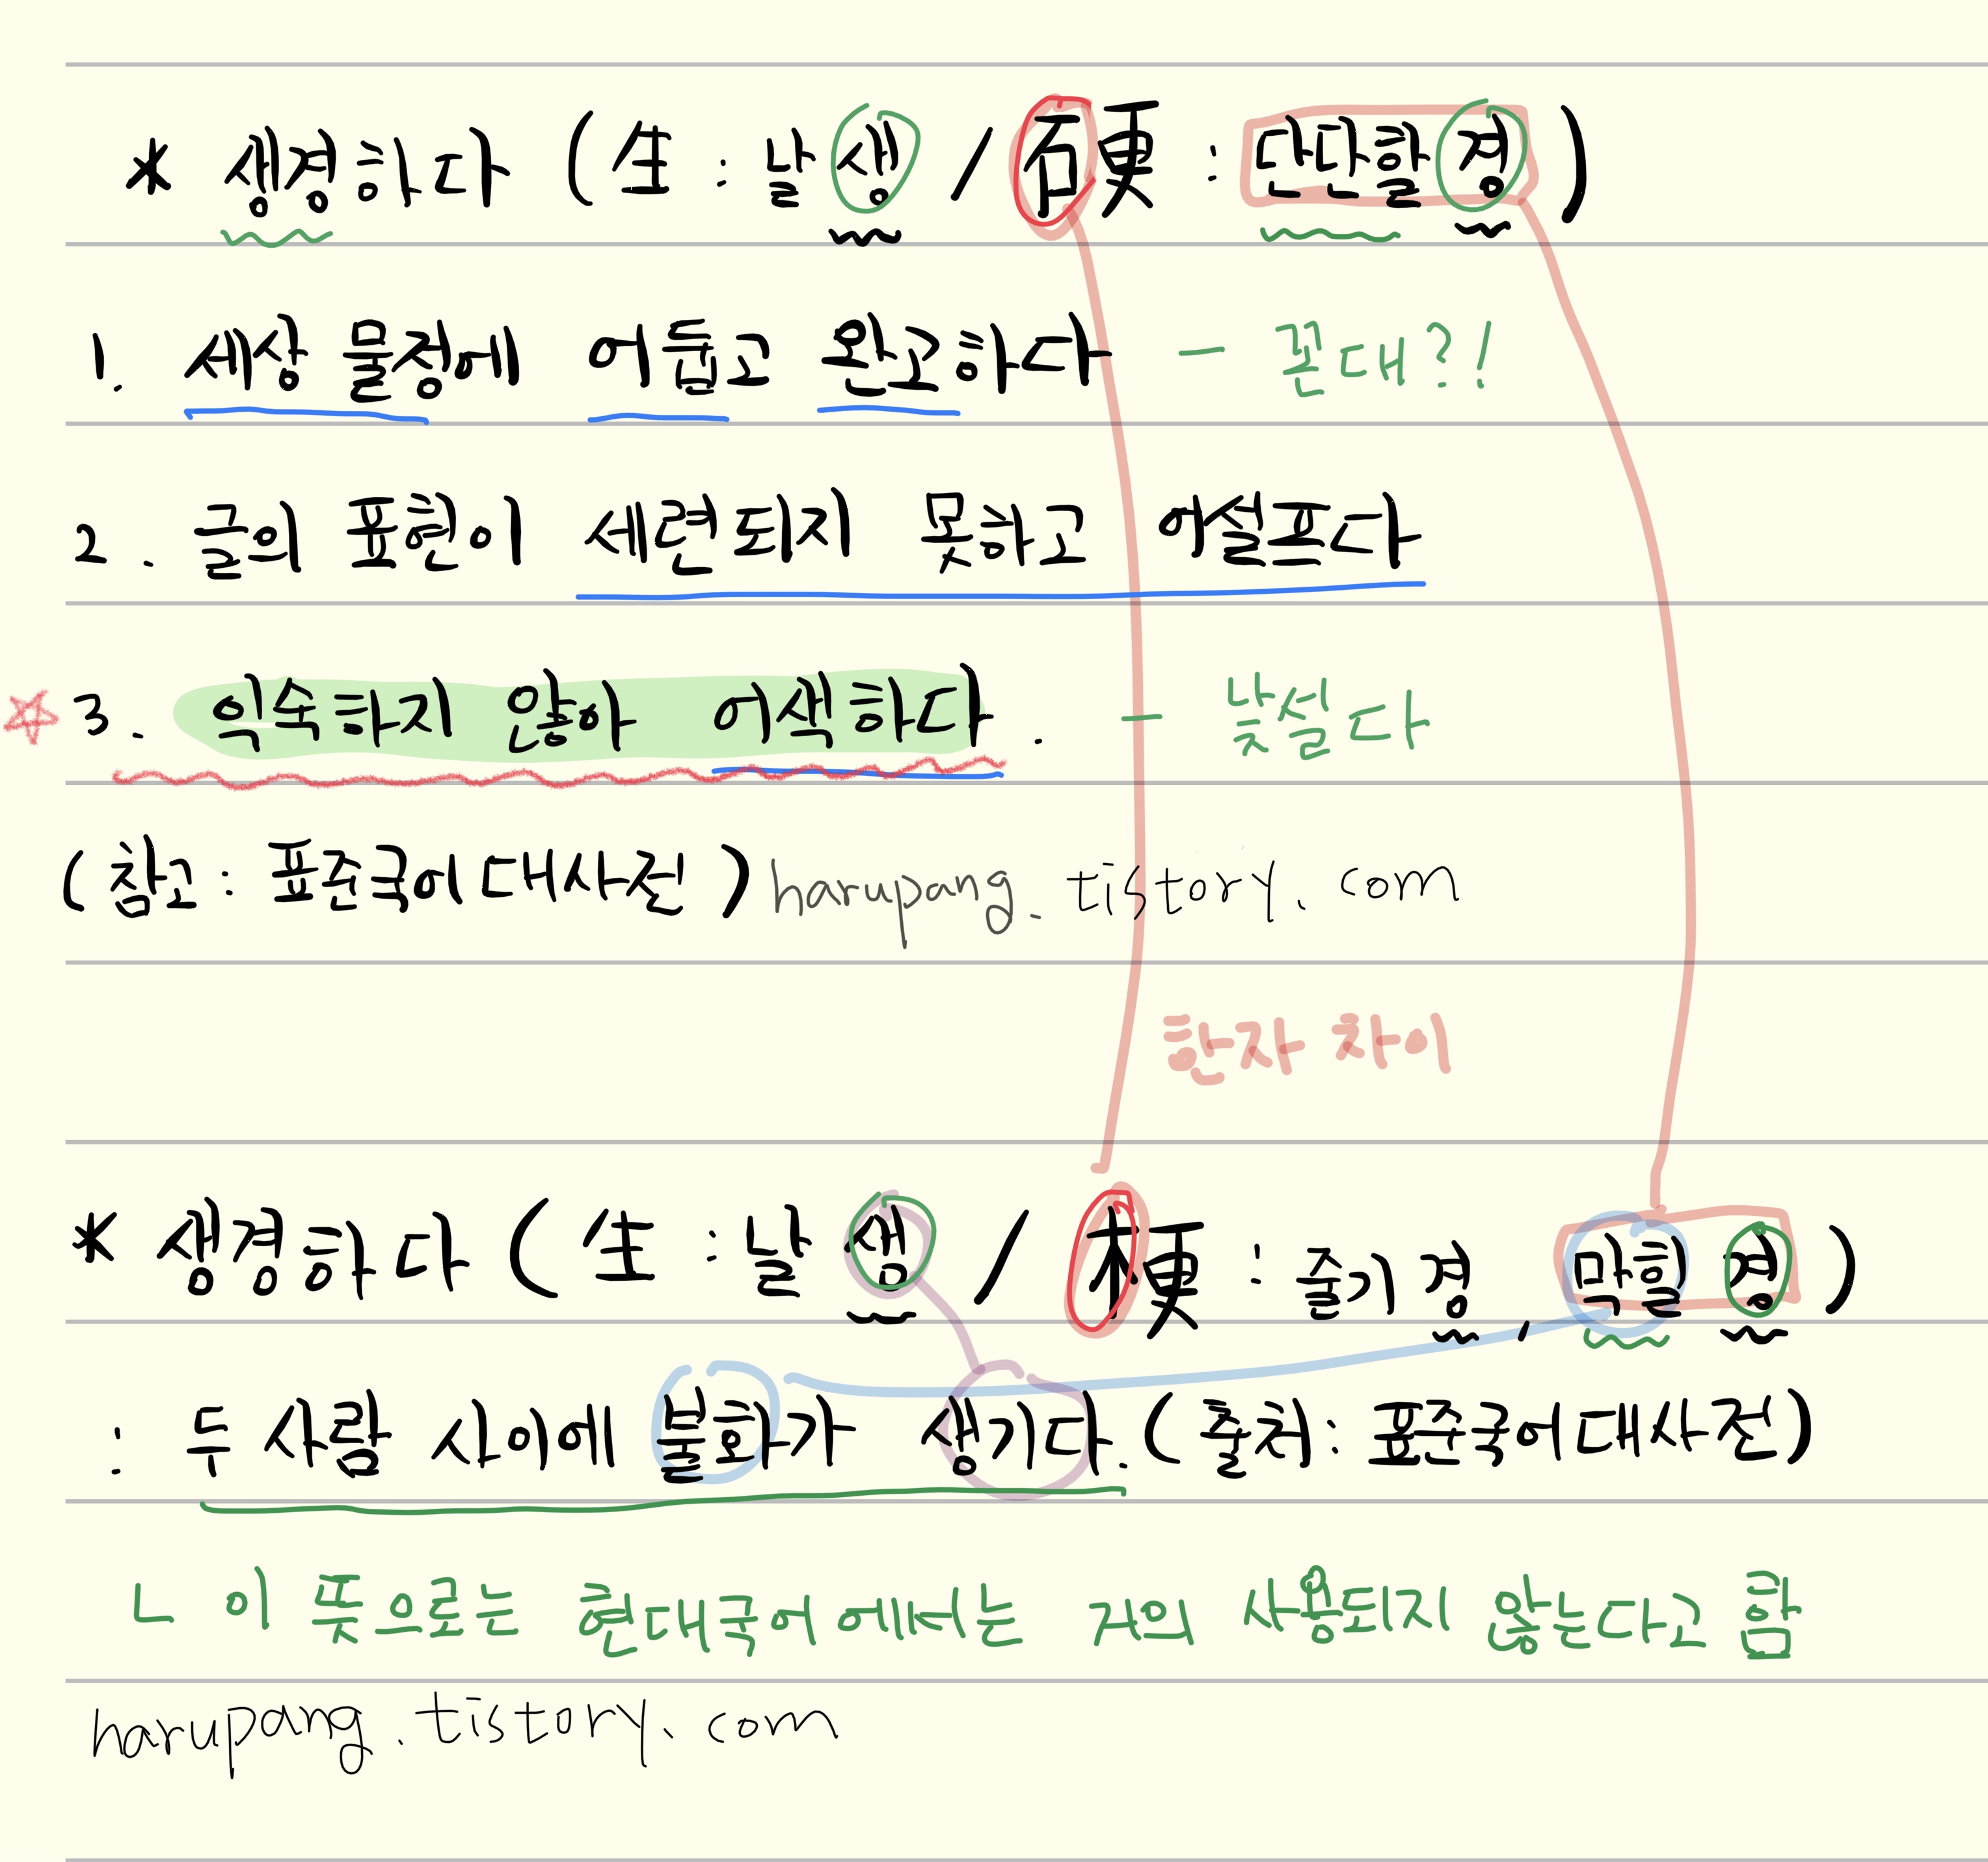 * 생경하다 (生 : 날 생 / 硬 : 단단할 경)
1. 세상 물정에 어둡고 완고하다 - 꼰대?!
2. 글의 표현이 세련되지 못하고 어설프다
☆ 3. 익속하지 않아 어색하다. - 낯설다
(참고 : 표준국어대사전) harupang.tistory.com
한자 차이
* 생경하다 (生 : 날 생 / 梗 : 줄기 경, 막힐 경)
: 두 사람 사이에 불화가 생기다. (출처 : 표준국어대사전)
ㄴ 이 뜻으로는 현대국어에서는 거의 사용되지 않는다고 함
harupang.tistory.com